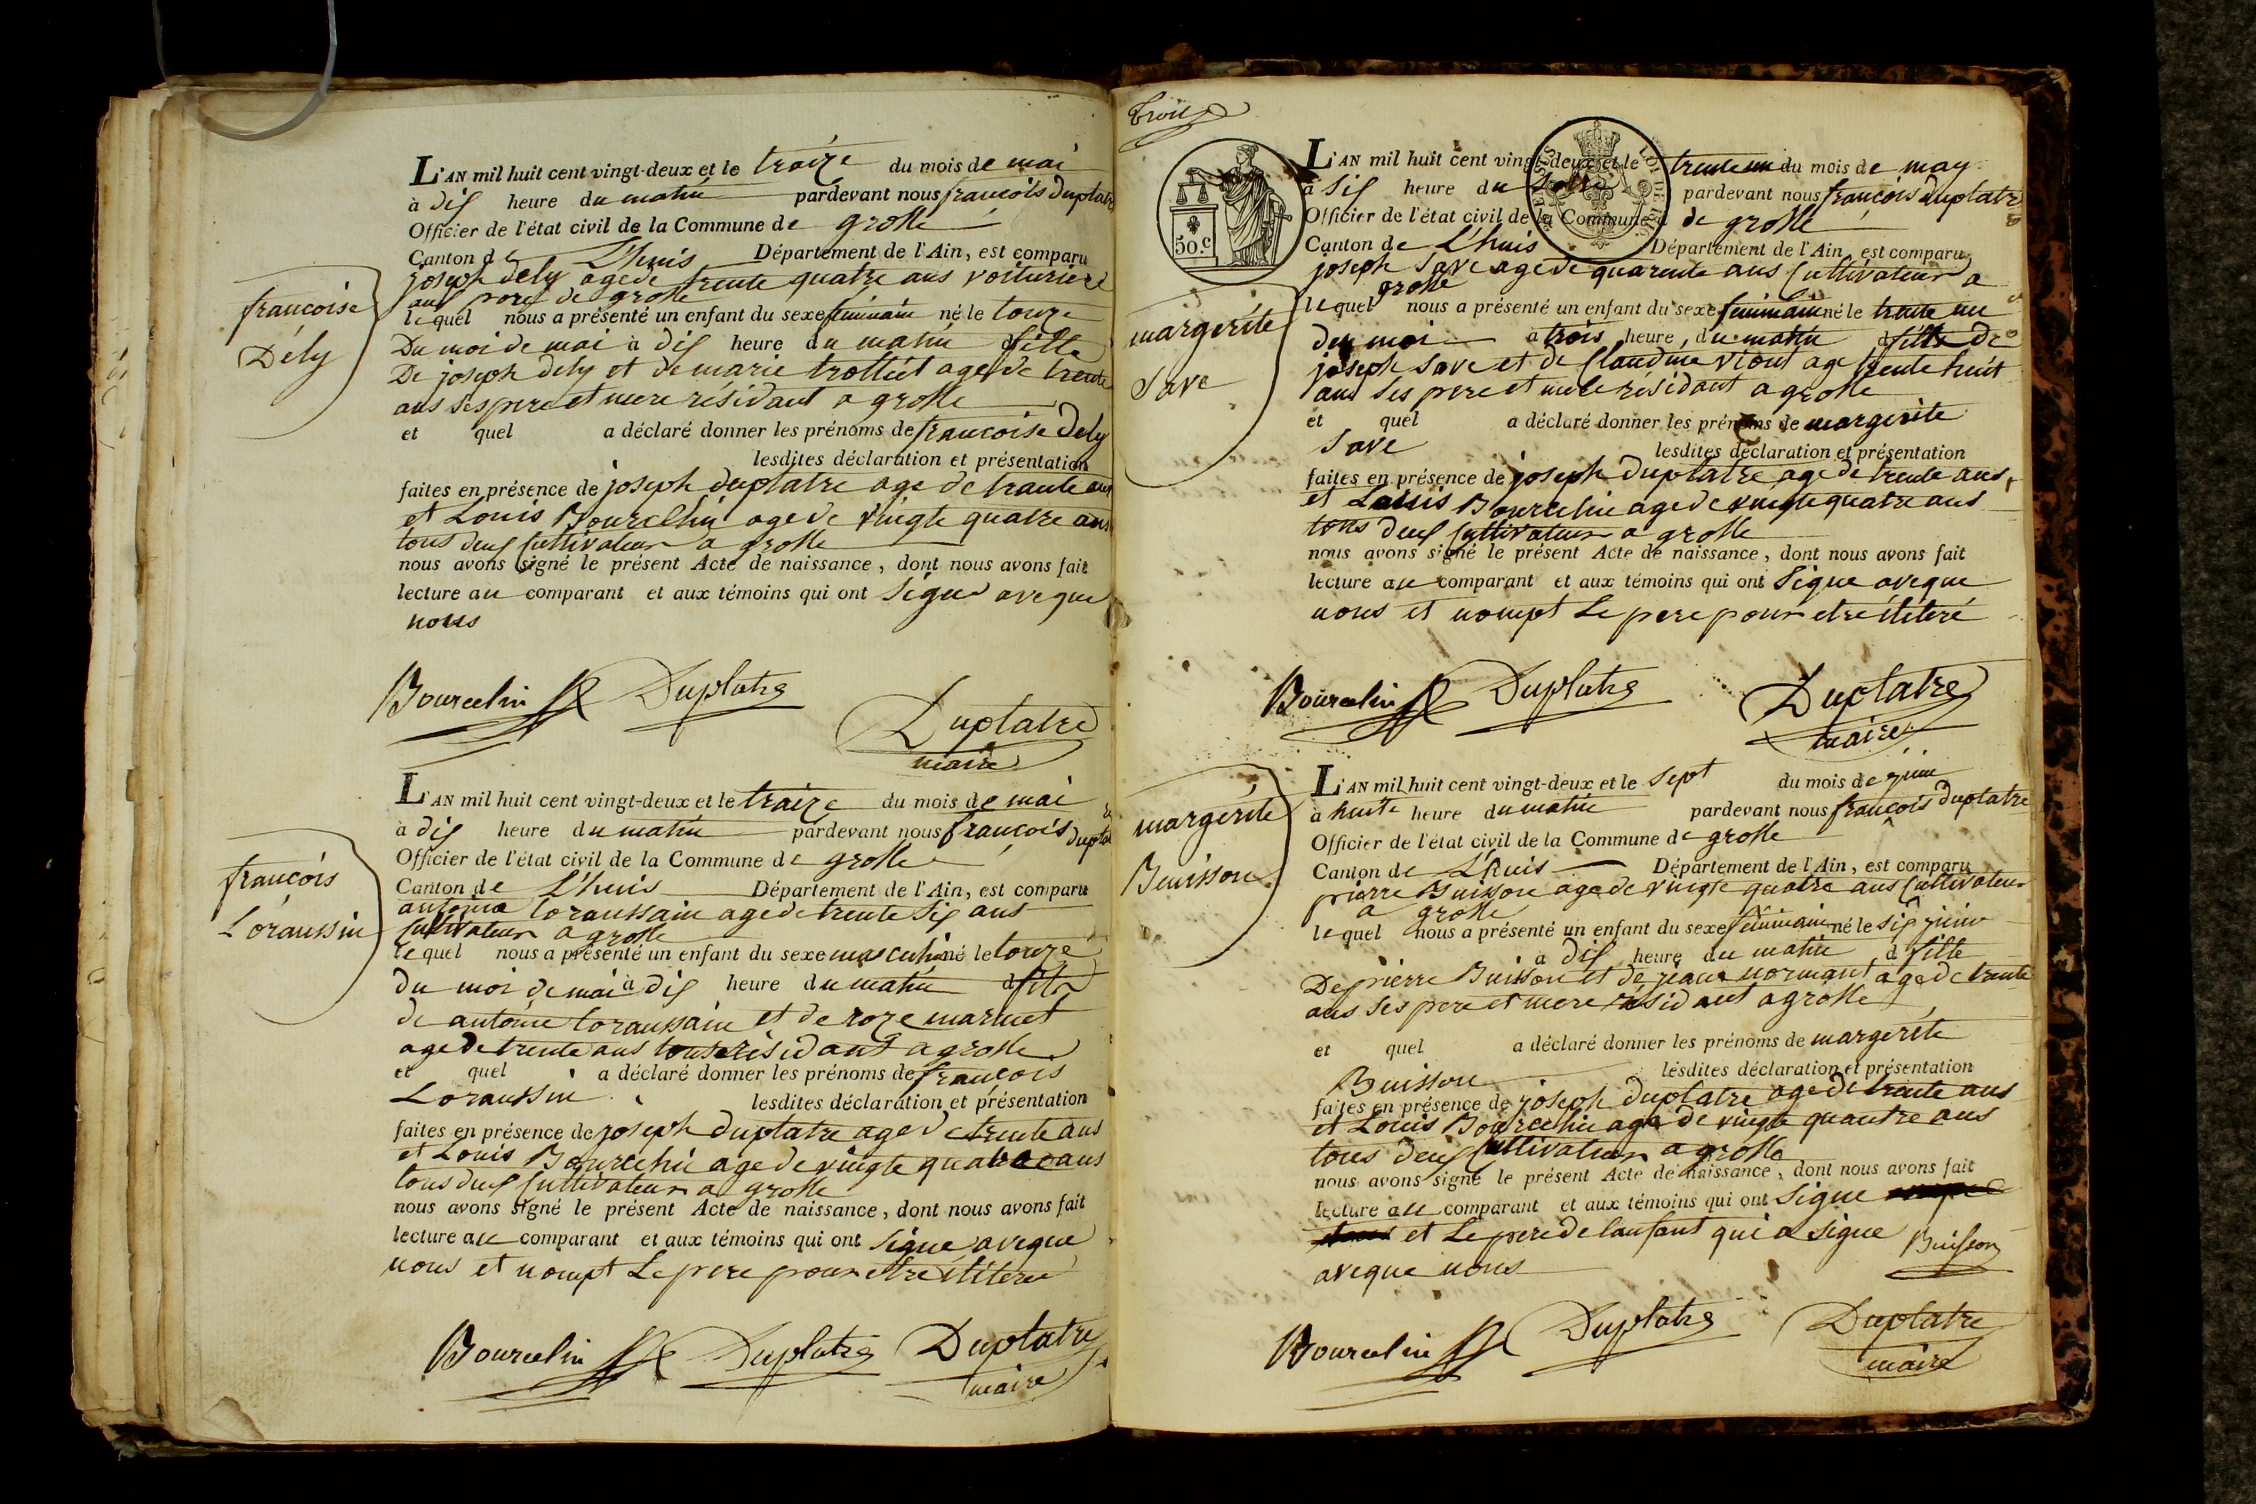 L'AN mil huit cent vingt-deux et le traize du mois de mai
à dix heure du matin pardevant nous francois Duplatre
Officier de l'état civil de la Commune de grolle
Canton de L'huis Département de l'Ain, est comparu
joseph Dely age de trente quatre ans voiturier
de grolle
francoise
Dély
lequel nous a présenté un enfant du sexe feminain né le touze
Du moi de mai à dix heure du matin fille
De joseph dely et de marie trolliet age de trente
ans ses pere et mere résidant a grolle
et quel a déclaré donner les prénoms de francoise Dely
lesdites déclaration et présentation
faites en présence de joseph duplatre age de traute ans
et Louis Bourcelin age de vingte quatre ans
tous deux Cultivateur a grolle
nous avons signé le présent Acte de naissance, dont nous avons fait
lecture au comparant et aux témoins qui ont Signé aveque
nous
Bourcelin Duplatre
Duplatre
maire
L'AN mil huit cent vingt-deux et le traize du mois de mai
à dix heure du matin pardevant nous francois duplatre
Officier de l'état civil de la Commune de grolle
Canton de L'huis Département de l'Ain, est comparu
antoine Loraussain age de trente Six ans
Cultivateur a grolle
francois
Loraussin
lequel nous a présenté un enfant du sexe masculin né le touze
du moi de mai à dix heure du matin fils
de antoine loraussain et de roze marmet
age de trente ans tous résidant a grolle
et quel a déclaré donner les prénoms de francois
Loraussin lesdites déclaration et présentation
faites en présence de joseph Duplatre age de trente ans
et Louis Bourcelin age de vingte quatre ans
tous deux Cultivateur a grolle
nous avons signé le présent Acte de naissance, dont nous avons fait
lecture au comparant et aux témoins qui ont Signe aveque
nous et nompt Le pere pour etre ilitere
Bourcelin Duplatre Duplatre
maire
trois
50.c
LOI DE
L'AN mil huit cent vingt-deux et le trente un du mois de may
à Six heure du Soire pardevant nous francois duplatre
Officier de l'état civil de la Commune de grolle
Canton de L'huis Département de l'Ain, est comparu
joseph Save age de quarente ans Cultivateur a
grolle
margerite
Save
lequel nous a présenté un enfant du sexe feminain né le traite un
du moi à trois heure, du matin fille De
joseph Save et de Claudine viont age trente huit
ans ses pere et mere résidant a grolle
et quel a déclaré donner les prénoms de margerite
Save lesdites déclaration et présentation
faites en présence de joseph Duplatre age de trente ans
et Louis Bourcelin age de vingte quatre ans
tous deux Cultivateur a grolle
nous avons signé le présent Acte de naissance, dont nous avons fait
lecture au comparant et aux témoins qui ont Signe aveque
nous et nompt Le pere pour etre ilitéré
Bourcelin Duplatre Duplatre
maire
L'AN mil huit cent vingt-deux et le Sept du mois de juin
à huite heure du matin pardevant nous francois duplatre
Officier de l'état civil de la Commune de grolle
Canton de L'huis Département de l'Ain, est comparu
pierre Buisson age de vingte quatre ans Cultivateur
a grolle
margerite
Beuisson
lequel nous a présenté un enfant du sexe feminain né le six juin
à dix heure du matin fille
De pierre Buisson et de jeane normant age de trente
ans ses pere et mere résidant a grolle
et quel a déclaré donner les prénoms de margerite
Buisson lesdites déclaration et présentation
faites en présence de joseph duplatre age de trente ans
et Louis Bourcelin age de vingte quautre ans
tous deux Cultivateur a grolle
nous avons signé le présent Acte de naissance, dont nous avons fait
lecture au comparant et aux témoins qui ont Signe
et Le pere de lanfant qui a signe
Buisson
aveque nous
Bourcelin Duplatre Duplatre
maire